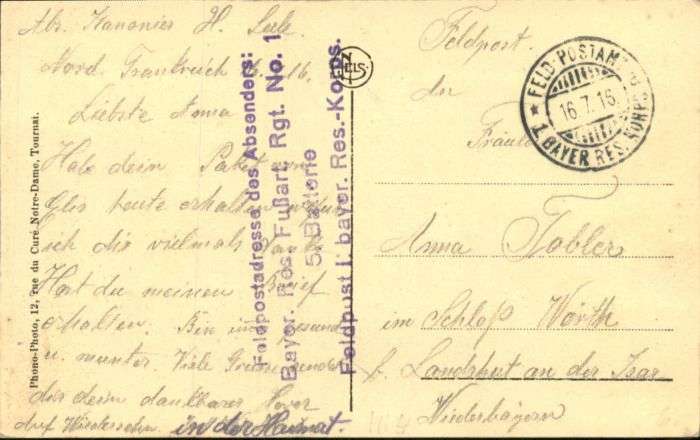 Abs. Kanonier H.
Nord. Frankreich 16.
Liebste Anna
Habe dein Paket vom
heute erhalten
ich dir vielmals Danke
Hast du meinen Brief
erhalten. Bin immer Gesund
u. munter. Viele Grüsse sendet
dir dein dankbarer
auf Wiedersehn. in der Heimat.
Phono-Photo, 12, rue du Curé Notre-Dame, Tournai.
Feldpostadresse des Absenders:
Bayer. Res. Fußart. Rgt. No. 1
5. Batterie
Feldpost I. bayer. Res.-Korps.
ELS
FELD-POSTAMT
16.7.16.
1. BAYER RES. KORPS
Feldpost.
an
Fräulein
Anna Tobler
im Schloß Wörth
b. Landshut an der Isar
Niederbayern